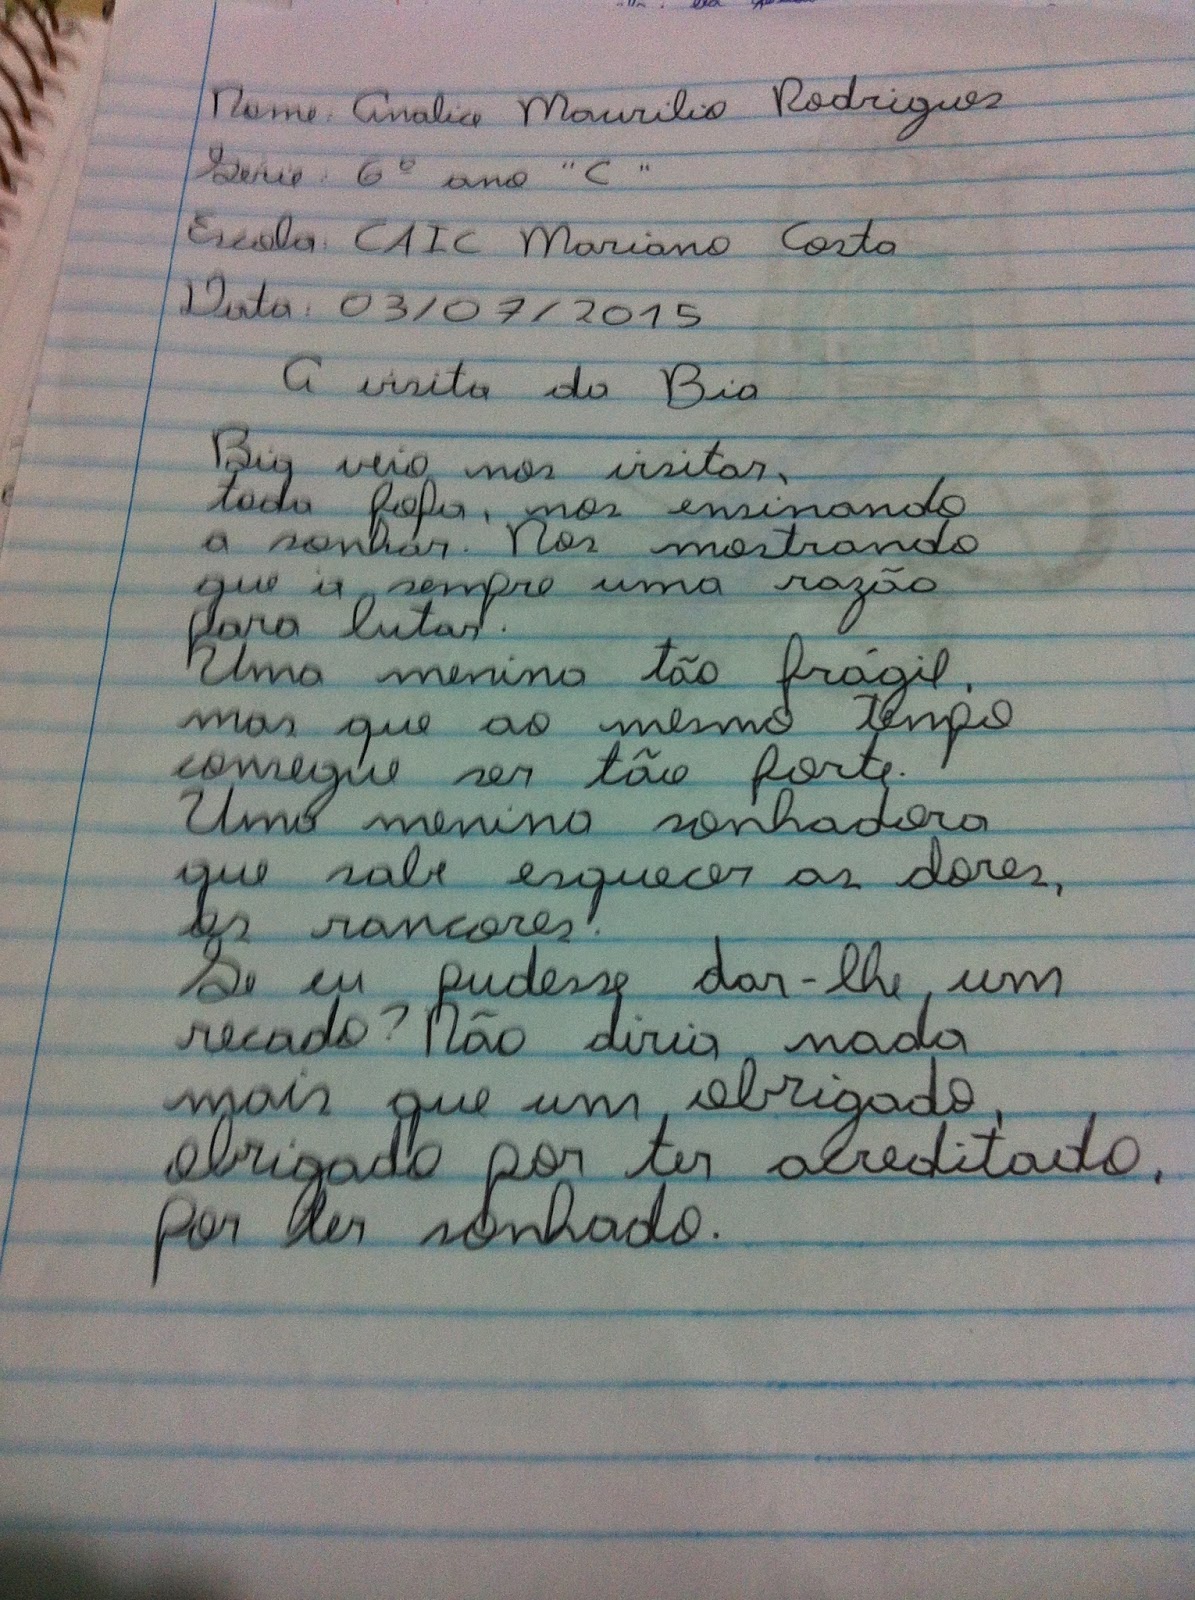 Nome: Analice Maurilio Rodrigues
Serie: 6º ano "C"
Escola: CAIC Mariano Costa
Data: 03/07/2015
A visita da Bia
Bia veio nos visitar,
toda fofa, nos ensinando
a sonhar. Nos mostrando
que a sempre uma razão
para lutar.
Uma menina tão frágil,
mas que ao mesmo tempo
consegue ser tão forte.
Uma menina sonhadora
que sabe esquecer as dores,
os rancores!
Se eu pudesse dar-lhe um
recado? Não diria nada
mais que um obrigado,
obrigado por ter acreditado,
por ter sonhado.